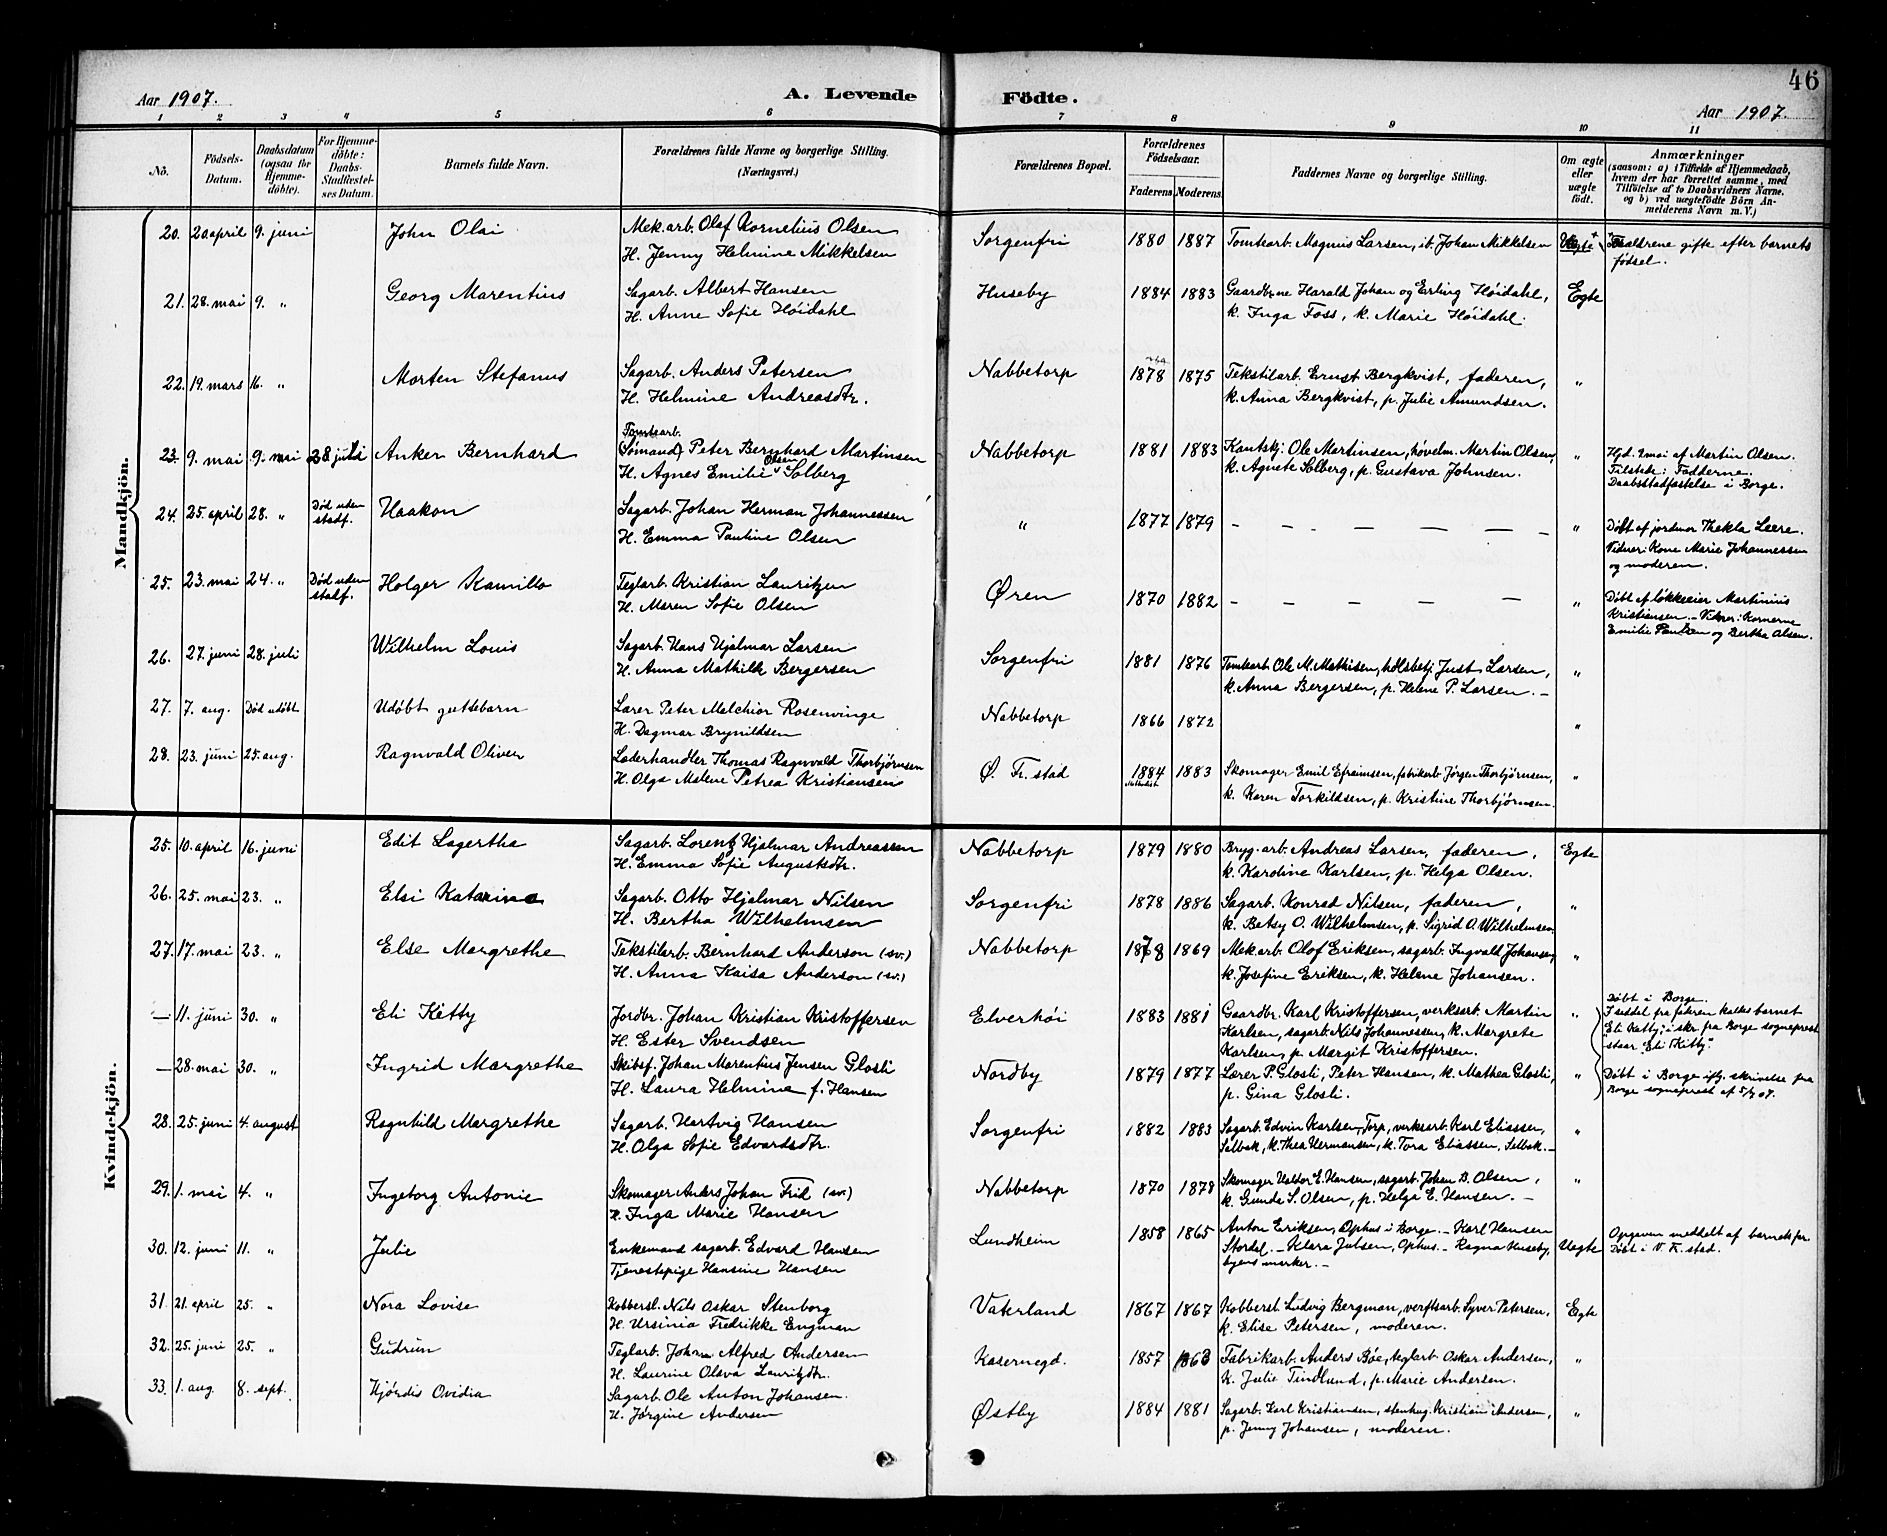 46
Aar 1907.
A. Levende Födte.
Aar 1907.
1 2 3 4 5 6 7 8 9 10 11
No.
Födsels-Datum.
Daabsdatum (ogsaa for Hjemmedöbte).
For Hjemmedöbte: Daabs-Stadfæstelses Datum.
Barnets fulde Navn.
Forældrenes fulde Navne og borgerlige Stilling.
(Næringsvei.)
Forældrenes Bopæl.
Forældrenes Födselsaar.
Faderens. Moderens.
Faddernes Navne og borgerlige Stilling.
Om ægte eller uægte födt.
Anmærkninger
(saasom: a) i Tilfælde af Hjemmedaab, hvem der har forrettet samme, med Tilföielse af to Daabsvidners Navne, og b) ved uægtefödte Börn Anmelderens Navn m. V.)
Mandkjön.
20. 20 april 9. juni John Olai Mek.arb. Olaf Kornelius Olsen
H. Jenny Helmine Mikkelsen Sorgenfri 1880 1887 Tomtearb. Magnus Larsen, it. Johan Mikkelsen Uegte + Foraldrene gifte efter barnets
fødsel.
21. 28. mai 9. " Georg Marentius Sagarb. Albert Hansen
H. Anne Sofie Høidahl Huseby 1884 1883 Gaardbrne Harald Johan og Erling Høidahl,
k. Inga Foss, k. Marie Høidahl. Egte
22. 19. mars 16. " Morten Stefanus Sagarb. Anders Petersen
H. Helmine Andreasdtr. Nabbetorp 1878 1875 Tekstilarb. Ernst Bergkvist, faderen,
k. Anna Bergkvist, p. Julie Amundsen. "
23. 9. mai 9. mai 28 juli Anker Bernhard Tomtearb.
(Sømand) Peter Bernhard Martinsen
H. Agnes Emilie Olsen Solberg Nabbetorp 1881 1883 Ole Martinsen, høvelm. Martin Olsen,
k. Agnete Solberg, p. Gustava Johnsen. " Hjd. 9 mai af Martin Olsen.
Tilstede: Fadderne.
Daabsstadfæstelse i Borge.
24. 25. april 28. " Død uden
stadf. Haakon Sagarb. Johan Herman Johannessen
H. Emma Pauline Olsen " 1877 1879 – – – – – – " Døbt af jordmor Thekla Leere.
Vidner: Kone Marie Johannessen
og moderen.
25. 23. mai 24. " Død uden
stadf. Holger Kamillo Teglarb. Kristian Lauritzen
H. Maren Sofie Olsen Øren 1870 1882 – – – – – " Døbt af løkkeeier Martinius
Kristiansen. – Vidner: Konerne
Emilie Paulsen og Bertha Olsen.
26. 27. juni 28. juli Wilhelm Louis Sagarb. Hans Hjalmar Larsen
H. Anna Mathilde Bergersen Sorgenfri 1881 1876 Tomtearb. Ole M. Mathisen, Just Larsen,
k. Anna Bergersen, p. Helene P. Larsen. – "
27. 7. aug. Død udøbt Udøbt guttebarn Lærer Peter Melchior Rosenvinge
H. Dagmar Brynildsen Nabbetorp 1866 1872 "
28. 23. juni 25. aug. Ragnvald Oliver Læderhandler Thomas Ragnvald Thorbjørnsen
H. Olga Malene Petrea Kristiansen Ø. Fr. stad 1884 Methodist 1883 Skomager Emil Efraimsen, fabrikarb. Jørgen Thorbjørnsen,
k. Karen Torkildsen, p. Kristine Thorbjørnsen. "
Kvindekjön.
25. 10. april 16. juni Edit Lagertha Sagarb. Lorents Hjalmar Andreassen
H. Emma Sofie Augustsdtr. Nabbetorp 1879 1880 Bryg.arb. Andreas Larsen, faderen,
k. Karoline Karlsen, p. Helga Olsen. Egte
26. 25. mai 23. " Elsi Katarina Sagarb. Otto Hjalmar Nilsen
H. Bertha Wilhelmsen Sorgenfri 1878 1886 Sagarb. Konrad Nilsen, faderen,
k. Betsy O. Wilhelmsen, p. Sigrid O. Wilhelmsen "
27. 17. mai 23. " Else Margrethe Tekstilarb. Bernhard Anderson (sv.)
H. Anna Kaisa Anderson (sv.) Nabbetorp 1878 1869 Mek.arb. Olof Eriksen, sagarb. Ingvald Johansen,
k. Josefine Eriksen, k. Helene Johansen. "
— 11. juni 30. " Eli Kitty Jordbr. Johan Kristian Kristoffersen
H. Ester Svendsen Elverhøi 1883 1881 Gaardbr. Karl Kristoffersen, verksarb. Martin
Karlsen, sagarb. Nils Johannessen, k. Margrete
Karlsen, p. Margit Kristoffersen. " Døbt i Borge.
I seddel fra fadren kaldes barnet
Eli Katty; i skr. fra Borge sogneprest
staar "Eli Kitty".
— 28. mai 30. " Ingrid Margrethe Skibsf. Johan Marentius Jensen Glosli
H. Laura Helmine f. Hansen Nordby 1879 1877 Lærer P. Glosli, Peter Hansen, k. Mathea Glosli,
p. Gina Glosli. " Døbt i Borge iflg. skrivelse fra
Borge sogneprest af 5/7 07.
28. 25. juni 4. august Ragnhild Margrethe Sagarb. Hartvig Hansen
H. Olga Sofie Edvardsdtr. Sorgenfri 1882 1883 Sagarb. Edvin Karlsen, Torp, verksarb. Karl Eliassen,
Selbak, k. Thea Hermansen, k. Tora Eliassen, Selbak. – "
29. 1. mai 4. " Ingeborg Antonie Skomager Anders Johan Frid (sv.)
H. Inga Marie Hansen Nabbetorp 1870 1878 Skomager Haldor E. Hansen, sagarb. Johan B. Olsen,
k. Gunda S. Olsen, p. Helga E. Hansen. – "
30. 12. juni 11. " Julie Enkemand sagarb. Edvard Hansen
Tjenestepige Hansine Hansen Lundheim 1858 1865 Anton Eriksen, Ophus i Borge. – Karl Hansen
Stordal. – Klara Julsen, Ophus. – Ragna Huseby,
byens marker. – Uegte Opgaven meddelt af barnets far
Døbt i V. Fr. stad.
31. 21. april 25. " Nora Lovise Kobbersl. Nils Oskar Stenborg
H. Ursinia Fredrikke Engman Vaterland 1867 1867 Kobbersl. Ludvig Bergman, verftsarb. Syver Petersen,
k. Elise Petersen, moderen. Egte
32. 25. juni 25. " Gudrun Teglarb. Johan Alfred Andersen
H. Laurine Olava Lauritsdtr. Kasernegd. 1857 1863 Fabrikarb. Anders Bøe, teglarb. Oskar Andersen,
k. Julie Tindlund, p. Marie Andersen. "
33. 1. aug 8. sept. Hjørdis Ovidia Sagarb. Ole Anton Johansen.
H. Jørgine Andersen Østby 1884 1881 Sagarb. Karl Kristiansen, stenhug. Kristian Andersen,
p. Jenny Johansen, moderen. "